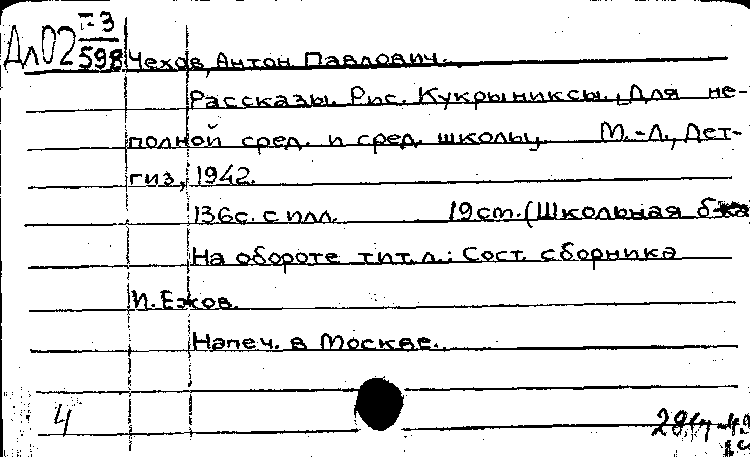 Дл02 П-3
598
Чехов, Антон Павлович.
Рассказы. Рис. Кукрыниксы. Для не-
полной сред. и сред. школы. М.-Л., Дет-
гиз, 1942.
136с. с илл. 19 cm. (Школьная б-ка
На обороте тит. л.: Сост. сборника
И. Ежов.
Напеч. в Москве.
4